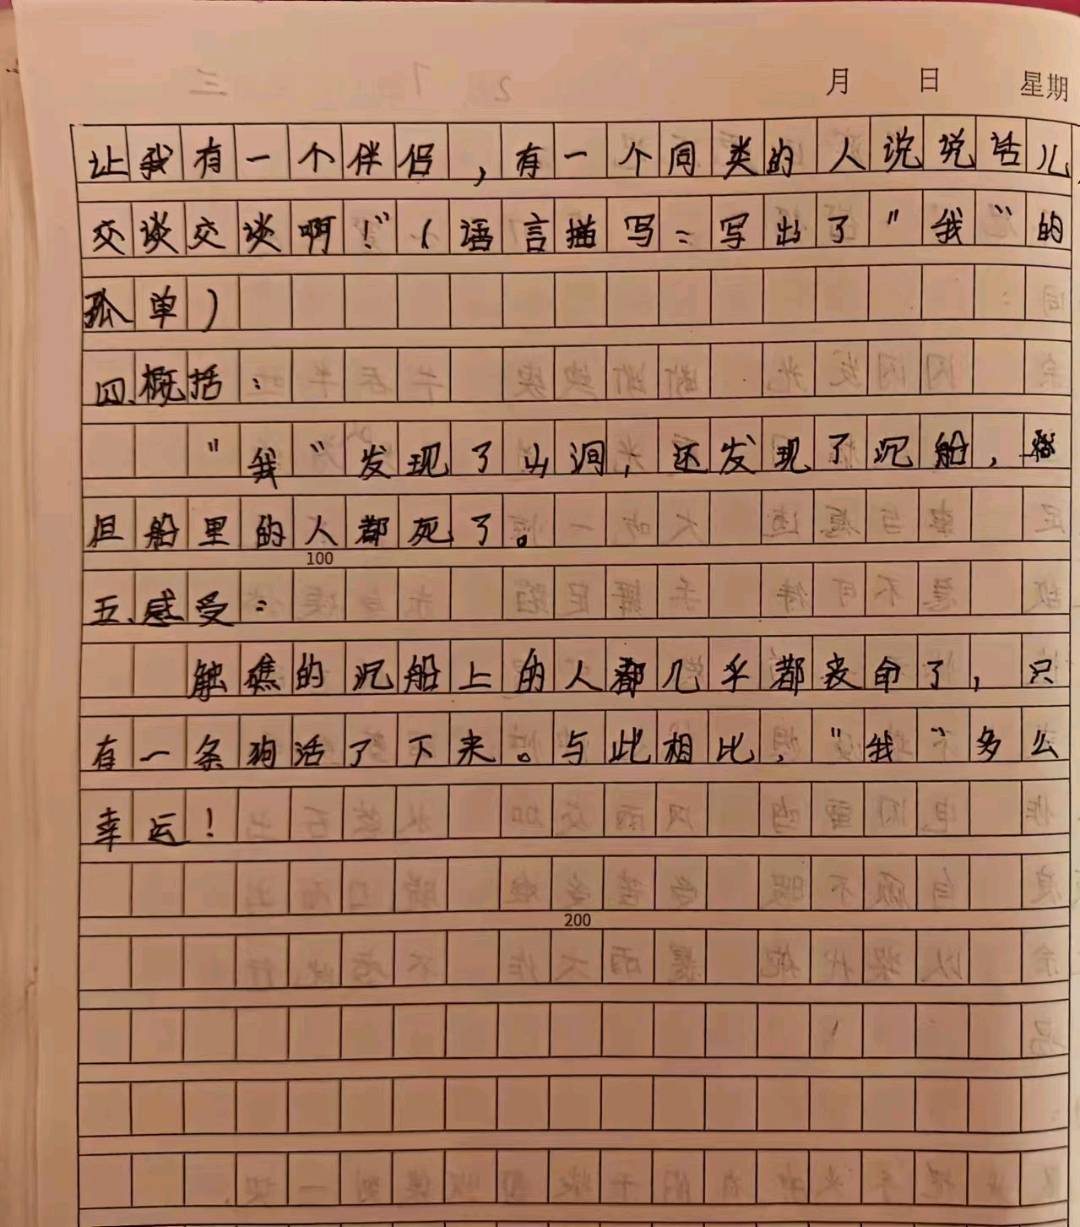 月 日 星期
让我有一个伴侣，有一个同类的人说说话儿，
交谈交谈啊！”（语言描写：写出了“我”的
孤单）
四、概括：
“我”发现了山洞，还发现了沉船，
但船里的人都死了。
100
五、感受：
触礁的沉船上的人都几乎都丧命了，只
有一条狗活了下来。与此相比，“我”多么
幸运！
200